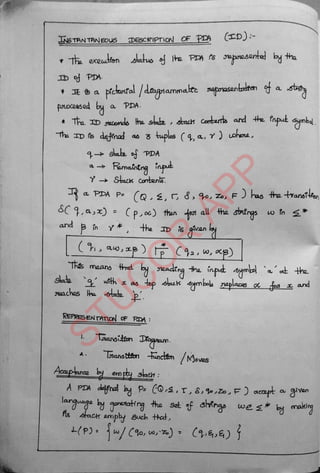 INSTANTANEOUS DESCRIPTION OF PDA (ID) :-
* The execution status of the PDA is represented by the
ID of PDA.
* It is a pictorial / diagrammatic representation of a string
processed by a PDA.
* The ID records the state, stack contents and the input symbol.
The ID is defined as 3 tuples (q, a, γ) where,
q → state of PDA
a → Remaining input
γ → Stack contents.
If a PDA P= (Q, Σ, Γ, δ, q0, Z0, F) has the transition
δ(q, a, x) = (p, α) then for all the strings w in Σ*
and β in γ*, the ID is given by
(q1, aw, xβ) |*p (q2, w, αβ)
This means that by reading the input symbol 'a' at the
state 'q' with x as top stack symbols replaces α for x and
reaches the state p.
REPRESENTATION OF PDA :
1. Transition Diagram.
2. Transition Function / Moves
Acceptance by empty stack :
A PDA defined by P= (Q, Σ, Γ, δ, q0, Z0, F) accept a given
language by generating the set of strings w∈Σ* by making
its stack empty such that,
L(P) = { w / (q0, w, Z0) = (q, ε, ε) }
STUCOR APP